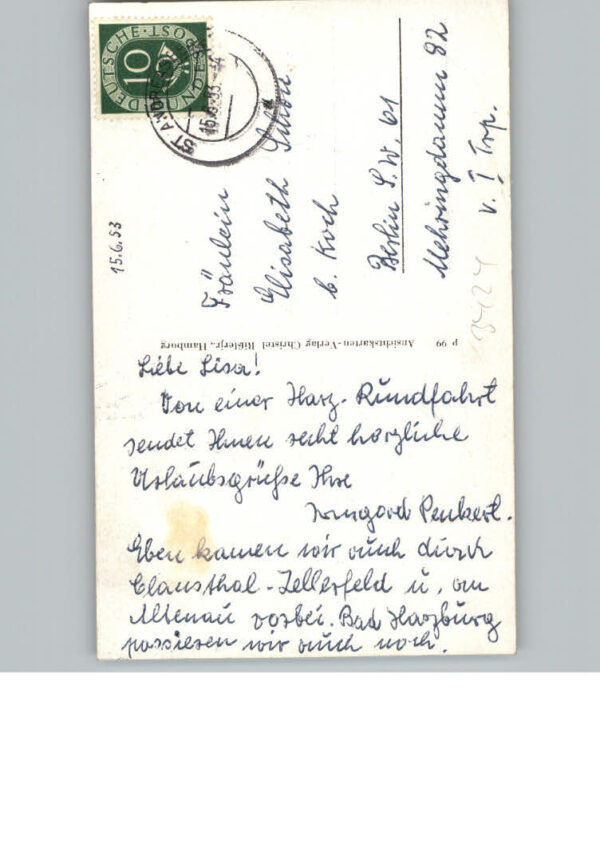 DEUTSCHE · POST
10
BUNDESPOST
ST. ANDREASBERG
15.6.53
15.6.53
Fräulein
Elisabeth
b. Koch
Berlin S.W. 61
Mehringdamm 82
v. I Trp.
P 99 Ansichtskarten-Verlag Christel Rißlerjr., Hamburg
Liebe Lisa!
Von einer Harz-Rundfahrt
sendet Ihnen recht herzliche
Urlaubsgrüße Ihre
Irmgard Penkert.
Eben kamen wir auch durch
Clausthal-Zellerfeld u. an
Altenau vorbei. Bad Harzburg
passieren wir auch noch.